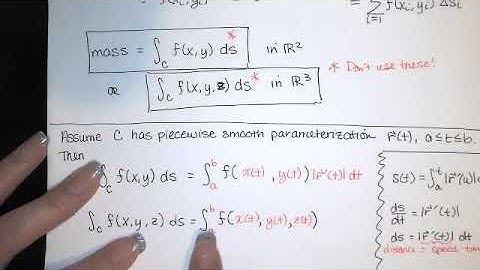 = Σ f(xᵢ, yᵢ) Δsᵢ
i=1
mass = ∫_C f(x,y) ds* in ℝ²
or ∫_C f(x,y,z) ds* in ℝ³
* Don't use these!
Assume C has piecewise smooth parameterization r⃗(t), a≤t≤b.
Then
∫_C f(x,y) ds = ∫_a^b f(x(t), y(t)) |r⃗'(t)| dt
∫_C f(x,y,z) ds = ∫_a^b f(x(t), y(t), z(t))
s(t) = ∫_a^t |r⃗'(u)|
ds/dt = |r⃗'(t)|
ds = |r⃗'(t)| dt
distance = speed